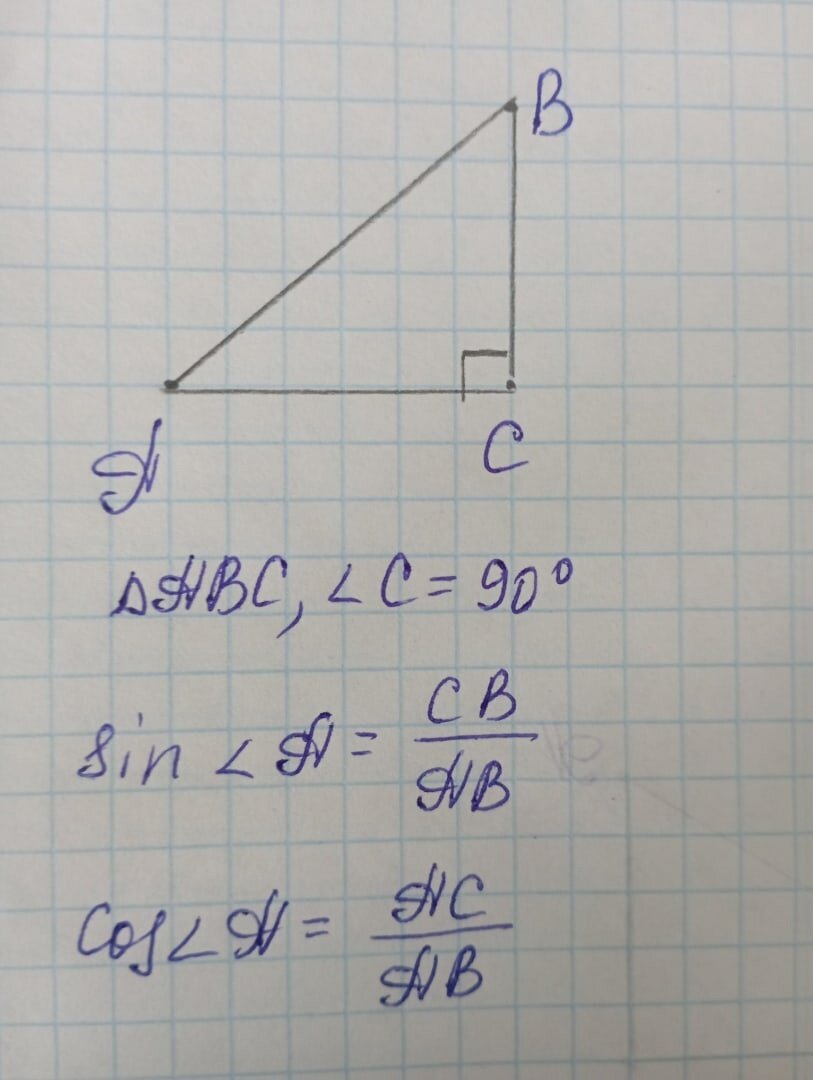 B
A
C
△ABC, ∠C = 90°
sin ∠A = CB/AB
cos∠A = AC/AB